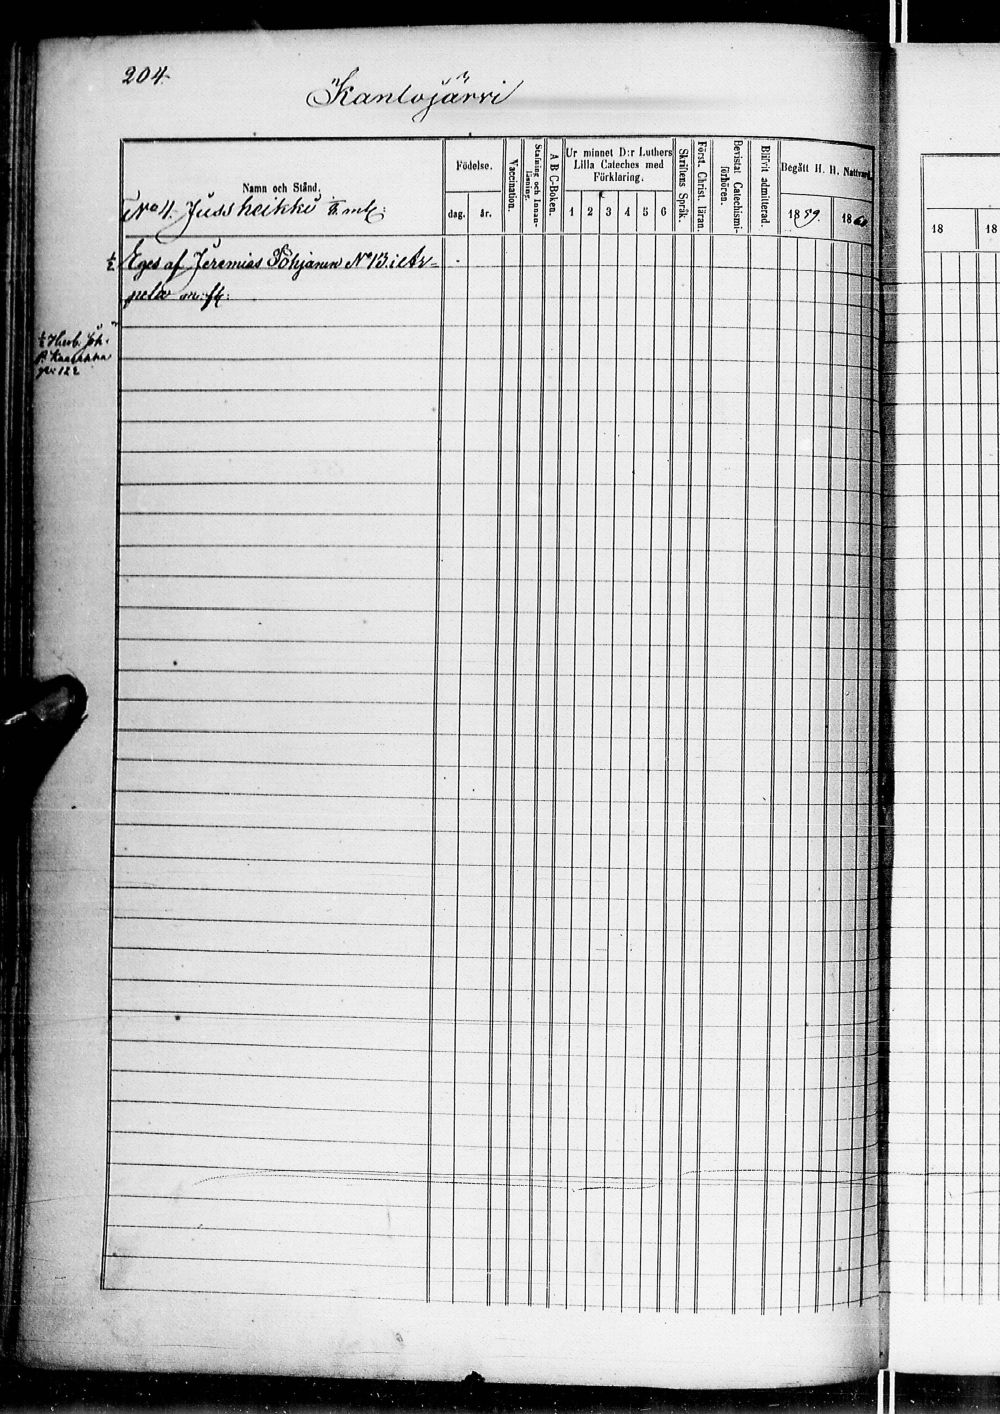 204.
Kantojärvi
Namn och Stånd.
Födelse.
dag. år.
Vaccination.
Stafning och Innan-
läsning.
A B C-Boken.
Ur minnet D:r Luthers
Lilla Cateches med
Förklaring.
1 2 3 4 5 6
Skriftens Språk.
Först. Christ. läran.
Bevistat Catechismi-
förhören.
Blifvit admitterad.
Begått H. H. Nattvard.
1859. 1860
18 18
No 4. Jussheikki mtl:
1/2 Eges af Jeremias Pohjanen No 13. i Ar-
pela
1/2 Husb. Joh.
122